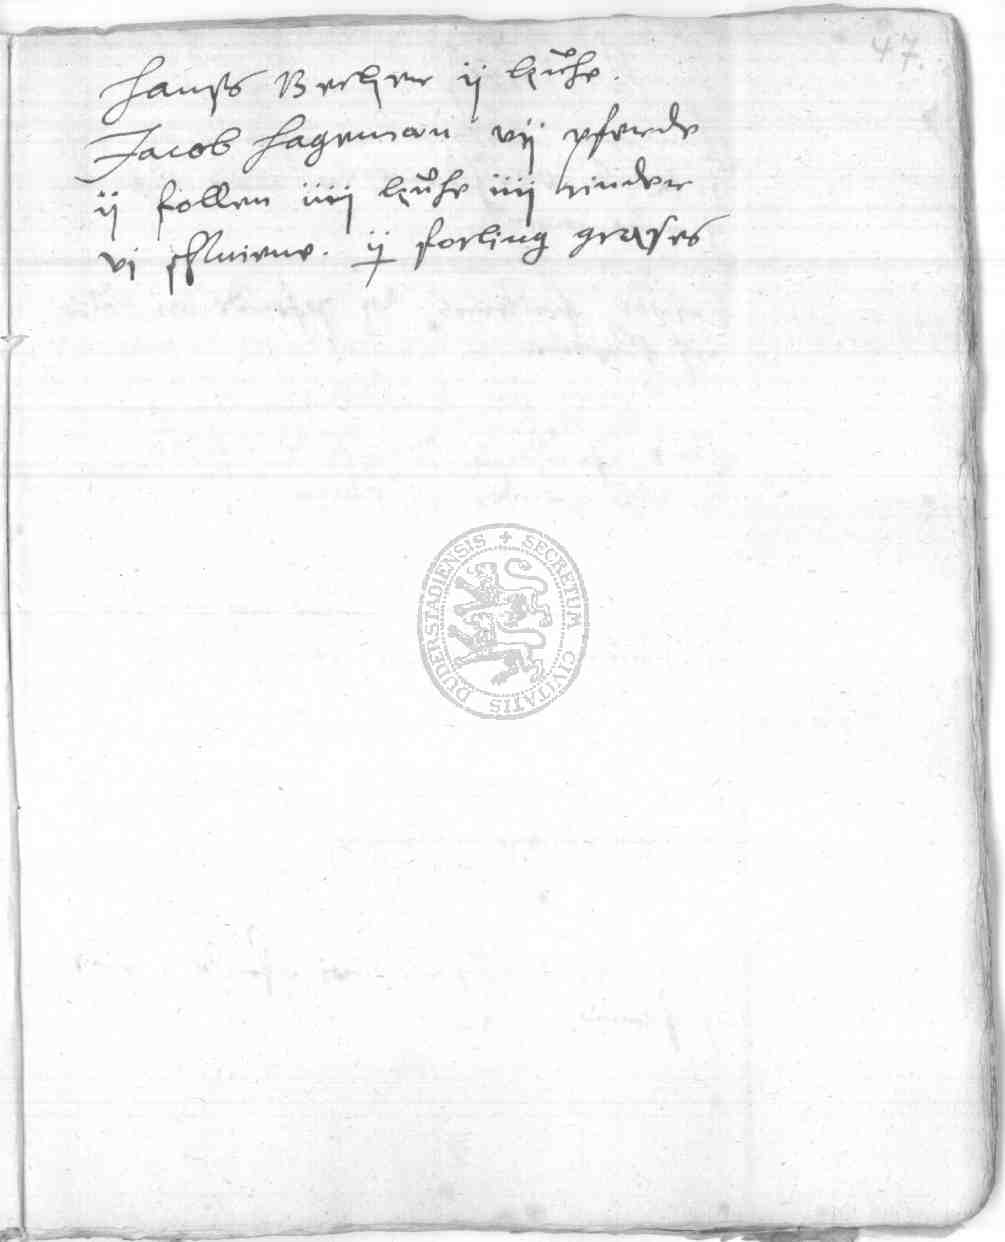 47.
Hanß Becker ij kuͦhe.
Jacob Hageman vij pferde
ij follen iiij kuͦhe iiij rinder
vi schweine. ij forling grases
SECRETUM CIVITATIS DUDERSTADIENSIS